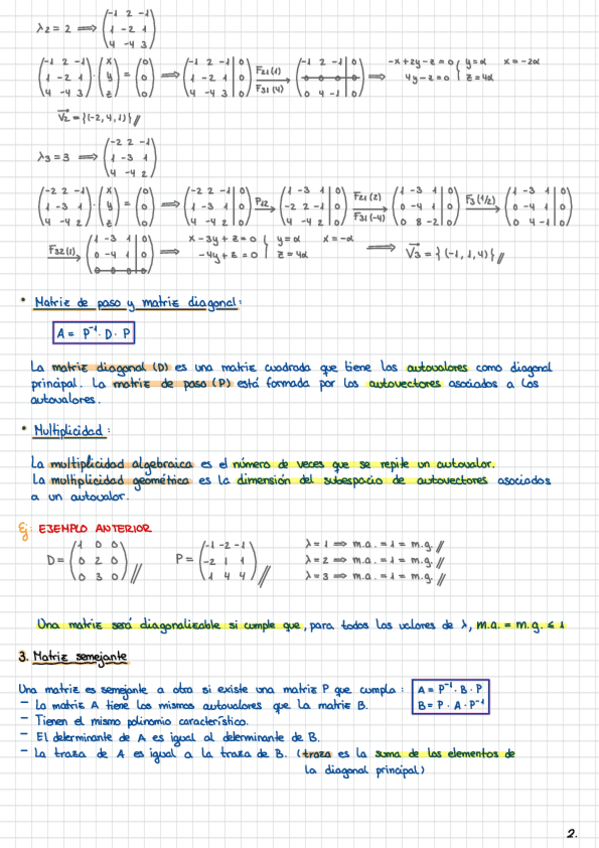 λ₂ = 2 ⟹ (-1 2 -1; 1 -2 1; 4 -4 3)
(-1 2 -1; 1 -2 1; 4 -4 3) · (x; y; z) = (0; 0; 0) ⟹ (-1 2 -1 | 0; 1 -2 1 | 0; 4 -4 3 | 0) F₂₁(1) F₃₁(4) ⟶ (-1 2 -1 | 0; 0 0 0 0; 0 4 -1 | 0) ⟹ -x+2y-z=0 4y-z=0 { y=α z=4α x=-2α
V₂ = {(-2,4,1)} //
λ₃ = 3 ⟹ (-2 2 -1; 1 -3 1; 4 -4 2)
(-2 2 -1; 1 -3 1; 4 -4 2) · (x; y; z) = (0; 0; 0) ⟹ (-2 2 -1 | 0; 1 -3 1 | 0; 4 -4 2 | 0) P₁₂ ⟶ (1 -3 1 | 0; -2 2 -1 | 0; 4 -4 2 | 0) F₂₁(2) F₃₁(-4) ⟶ (1 -3 1 | 0; 0 -4 1 | 0; 0 8 -2 | 0) F₃(1/2) ⟶ (1 -3 1 | 0; 0 -4 1 | 0; 0 4 -1 | 0)
F₃₂(1) ⟶ (1 -3 1 | 0; 0 -4 1 | 0; 0 0 0 0) ⟹ x-3y+z=0 -4y+z=0 { y=α z=4α x=-α ⟹ V₃ = {(-1,1,4)} //
* Matriz de paso y matriz diagonal:
A = P⁻¹ · D · P
La matriz diagonal (D) es una matriz cuadrada que tiene los autovalores como diagonal
principal. La matriz de paso (P) está formada por los autovectores asociados a los
autovalores.
* Multiplicidad:
La multiplicidad algebraica es el número de veces que se repite un autovalor.
La multiplicidad geométrica es la dimensión del subespacio de autovectores asociados
a un autovalor.
Ej: EJEMPLO ANTERIOR
D = (1 0 0; 0 2 0; 0 3 0) // P = (-1 -2 -1; -2 1 1; 1 4 4) // λ=1 ⟹ m.a. = 1 = m.g. //
λ=2 ⟹ m.a. = 1 = m.g. //
λ=3 ⟹ m.a. = 1 = m.g. //
Una matriz será diagonalizable si cumple que, para todos los valores de λ, m.a. = m.g. ≤ 1
3. Matriz semejante
Una matriz es semejante a otra si existe una matriz P que cumpla: A = P⁻¹ · B · P
B = P · A · P⁻¹
- La matriz A tiene los mismos autovalores que la matriz B.
- Tienen el mismo polinomio característico.
- El determinante de A es igual al determinante de B.
- La traza de A es igual a la traza de B. (traza es la suma de los elementos de
la diagonal principal)
2.